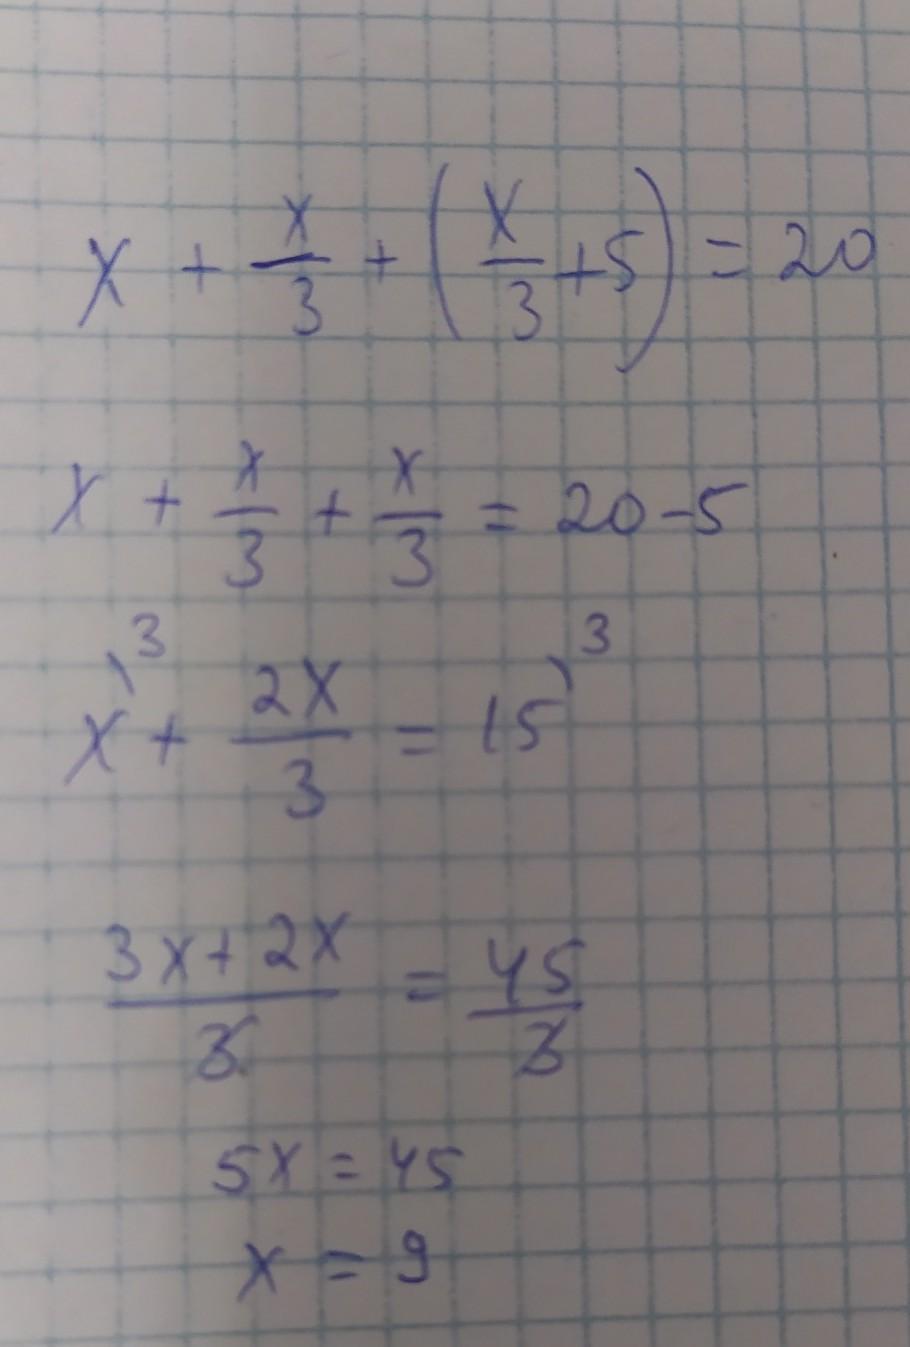 x + x/3 + (x/3 + 5) = 20
x + x/3 + x/3 = 20 - 5
x\3 + 2x/3 = 15\3
(3x + 2x)/3 = 45/3
5x = 45
x = 9